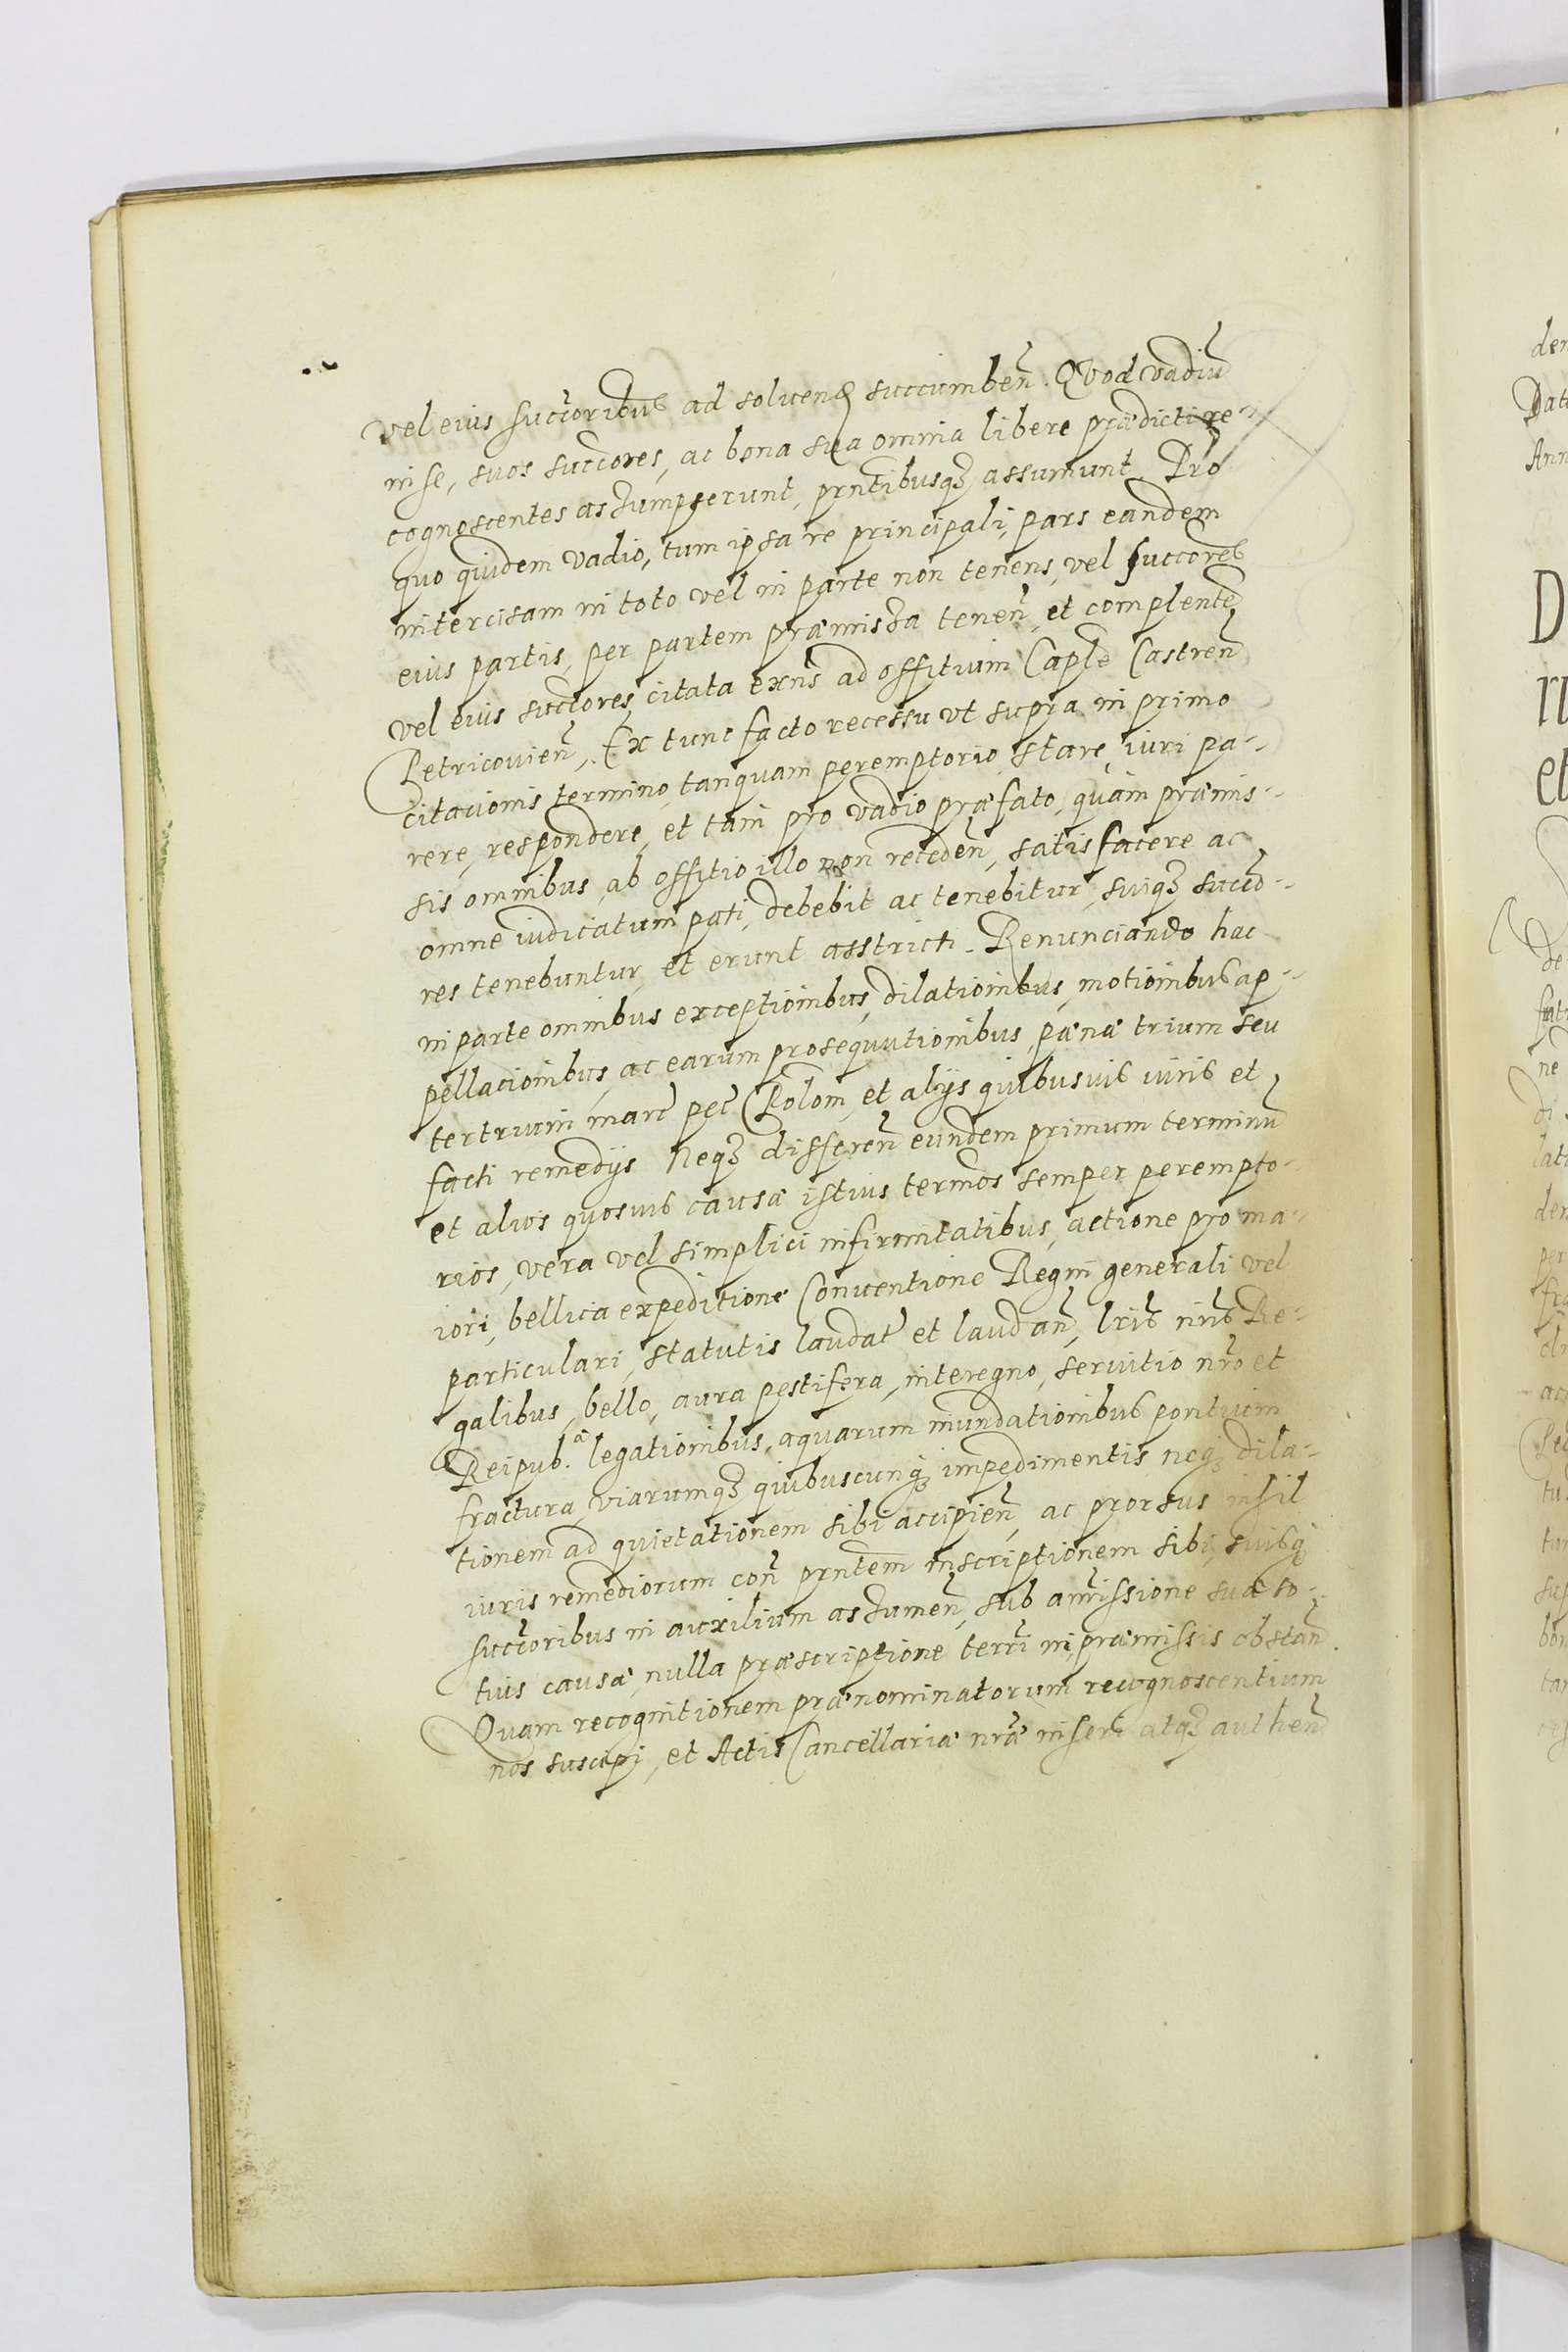 vel eius succ̃oribus ad solvend succumben̄. Qvod vadiū
in se, suos succ̃ores, ac bona sua omnia libere prædicti re-
cognoscentes assumpserunt, prn̄tibusqȝ assumunt. Pro
quo quidem vadio, tum ipsa re principali, pars eandem
intercisam in toto vel in parte non tenens, vel succores
eius partis, per partem præmissa tenen̄, et complentē
vel eius succ̃ores, citata exn̄s ad offitium Capłe Castren̄
Petricouien̄, Ex tunc facto recessu vt supra in primo
citacionis termino, tanquam peremptorio, stare, iuri pa-
rere, respondere, et tam pro vadio præfato, quàm præmis-
sis omnibus, ab offitio illo non receden̄, satisfacere ac
omne iudicatum pati, debebit ac tenebitur, suiqȝ succo-
res tenebuntur, et erunt asstricti. Renunciando hac
in parte omnibus exceptionibus, dilationibus, motionibus ap-
pellacionibus, ac earum prosequutionibus, pænæ trium seu
tertrium marc̃ pec̃ Polon̄, et alijs quibusvis iuris et
facti remedijs Neqȝ differen̄ eundem primum terminū
et alios quosvis causæ istius termos semper perempto-
rios, vera vel simplici infirmitatibus, actione pro ma-
iori, bellica expeditione Conventione Regni generali vel
particulari, statutis laudat̃ et laudan̄, lrīs nrīs Re-
galibus, bello, aura pestifera, interegno, servitio nrō et
Reipub.ᵃ legationibus, aquarum inundationibus pontium
fractura, viarumqȝ quibuscunqȝ impedimentis neqȝ dila-
tionem ad quietationem sibi accipien̄, ac prorsus nihil
iuris remediorum con̄ prn̄tem inscriptionem sibi, suisqȝ
succ̃oribus in auxilium assumen̄, sub amissione suæ to-
tius causæ, nulla præscriptione terrī in præmissis obstan̄.
Quam recognitionem prænominatorum recognoscentium
nos suscepi, et Actis Cancellariæ nrǣ inseri atqȝ authen̄